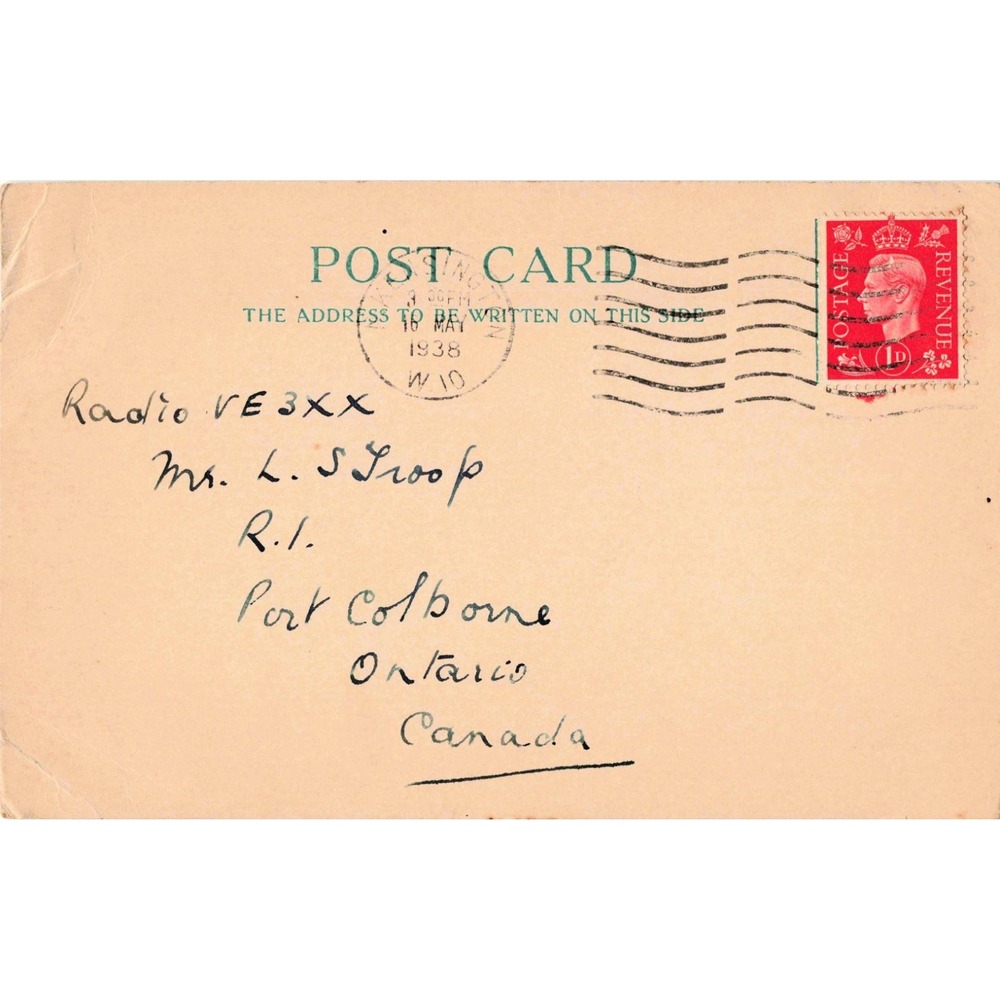 POST CARD
THE ADDRESS TO BE WRITTEN ON THIS SIDE
N. KENSINGTON
PM
16 MAY
1938
W 10
POSTAGE
REVENUE
1D
Radio VE3XX
Mr. L. S Troop
R.1.
Port Colborne
Ontario
Canada